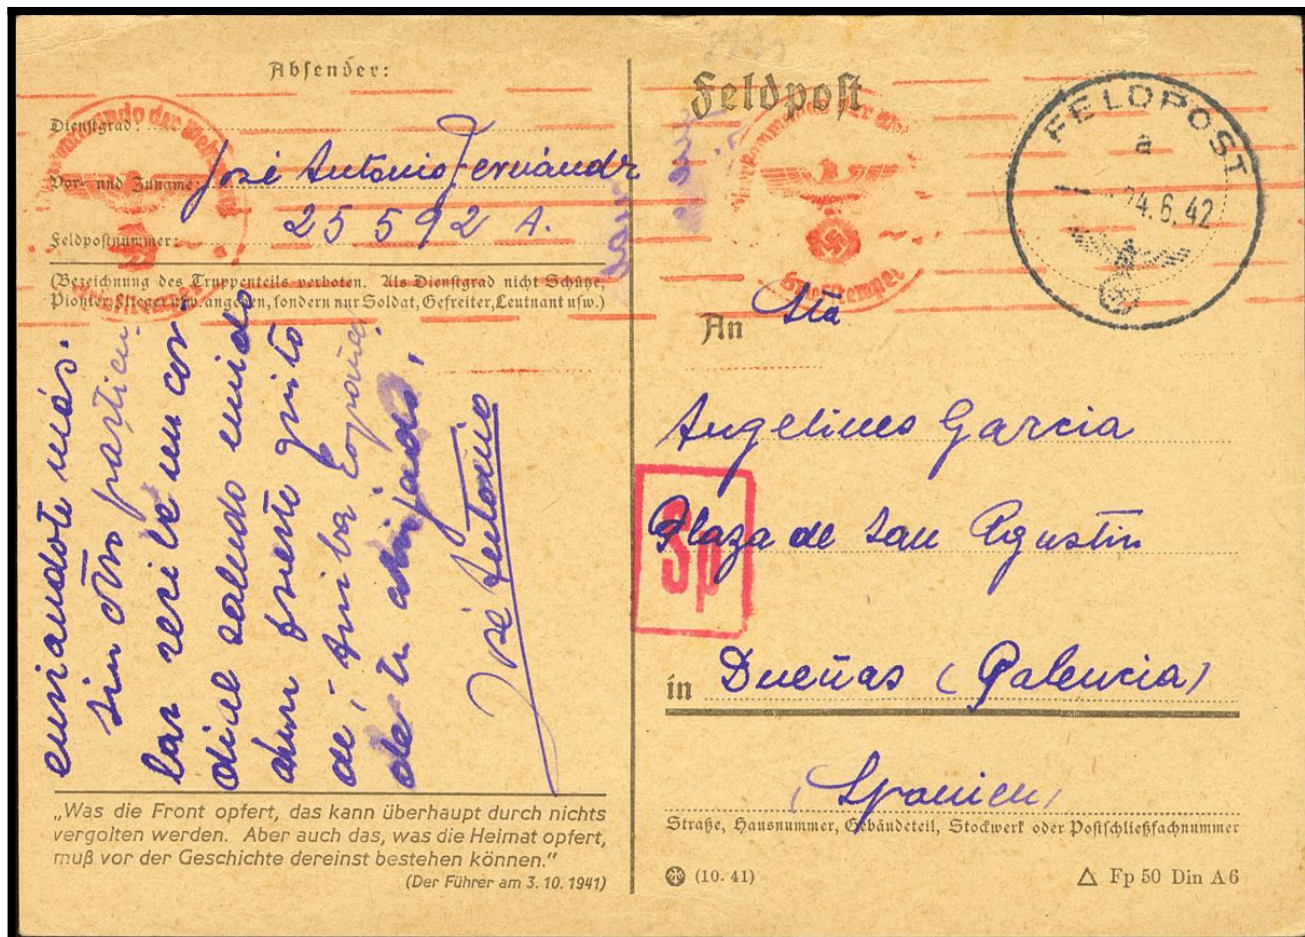 Absender:
Dienstgrad:
Vor- und Zuname: José Antonio Fernández
Feldpostnummer: 25592 A.
(Bezeichnung des Truppenteils verboten. Als Dienstgrad nicht Schütze,
Pionier, Flieger usw. angeben, sondern nur Soldat, Gefreiter, Leutnant usw.)
enviandote más.
sin otro particu-
lar recibe un cor-
dial saludo unido
a un fuerte grito
de, Arriba España,
de tu ahijado,
José Antonio
„Was die Front opfert, das kann überhaupt durch nichts
vergolten werden. Aber auch das, was die Heimat opfert,
muß vor der Geschichte dereinst bestehen können."
(Der Führer am 3. 10. 1941)
Feldpost
Oberkommando der Wehrmacht
Briefstempel
FELDPOST
a
24.6.42
An Sta
Angelines Garcia
Sp
Plaza de San Agustin
in Dueñas (Palencia)
(Spanien)
Straße, Hausnummer, Gebäudeteil, Stockwerk oder Postschließfachnummer
(10. 41)
Fp 50 Din A6